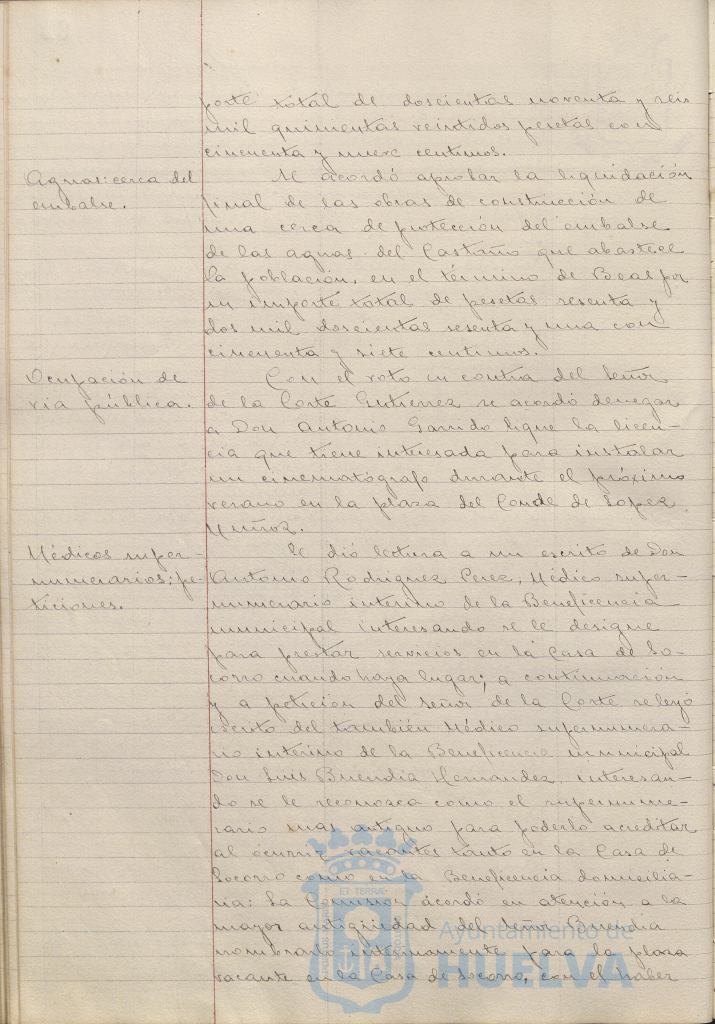 porte total de doscientas noventa y seis
mil quinientas veintidos pesetas con
cincuenta y nueve centimos.
Aguas: cerca del
embalse.
Se acordó aprobar la liquidación
final de las obras de construcción de
una cerca de protección del embalse
de las aguas del Castaño que abastece
la población, en el término de Beas por
un importe total de pesetas sesenta y
dos mil doscientas sesenta y una con
cincuenta y siete centimos.
Ocupación de
via pública.
Con el voto en contra del Señor
de la Corte Gutierrez se acordó denegar
a Don Antonio Garrido Ligue la licen-
cia que tiene interesada para instalar
un cinematógrafo durante el próximo
verano en la plaza del Conde de Lopez
Muñoz.
Médicos super-
numerarios: pe-
ticiones.
Se dió lectura a un escrito de Don
Antonio Rodriguez Perez, Médico super-
numerario interino de la Beneficencia
municipal interesando se le designe
para prestar servicios en la Casa de So-
corro cuando haya lugar; a continuación
y a petición del Señor de la Corte se leyó
escrito del también Médico supernumera-
rio interino de la Beneficencia municipal
Don Luis Buendia Hernandez, interesan-
do se le reconozca como el supernume-
rario mas antiguo para poderlo acreditar
al ocurrir vacantes tanto en la Casa de
Socorro como en la Beneficencia domicilia-
ria: La Comision acordó en atención a la
mayor antigüedad del Señor Buendia
nombrarlo internamente para la plaza
vacante en la Casa de Socorro, con el haber
ET TERRÆ
Ayuntamiento de
HUELVA